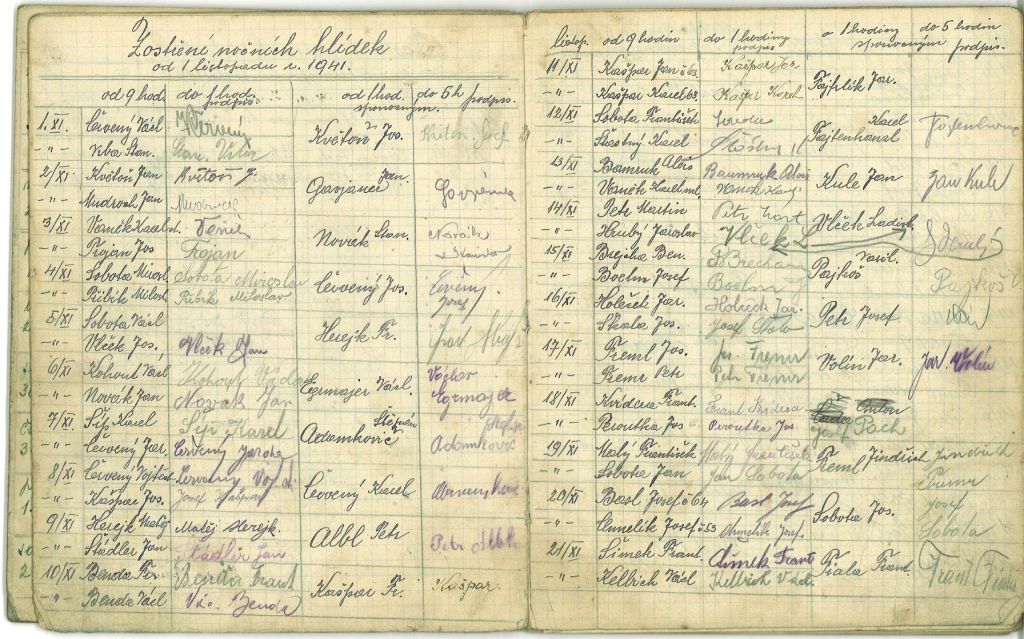 Zostření nočních hlídek
od 1 listopadu r. 1941.
od 9 hod. do 1 hod. podpis. od 1 hod. do 5 h podpis.
1. XI. Červený Václ Červený Květoň Jos.
-"- Vrba Stan. Stan. Vrba
2/XI Květoň Jan Květoň J. Jan.
-"- Mudroch Jan
3/XI Vaněk Karel st. Novák Stan. Novák
-"- Trojan Jos Trojan
4/XI Sobota Mirosl Sobota Miroslav Červený Jos. Červený
-"- Přibík Milosl. Přibík Miloslav Josef
5/XI Sobota Václ Herejk Fr.
-"- Vlček Jos. Vlček Jan
6/XI Kohout Václ Kohout Egrmajer Václ
-"- Novák Jan Novák Jan
7/XI Šíp Karel Šíp Karel Adamkovič Štěpán
-"- Červený Jar. Červený Adamkovič
8/XI Červený Vojtěch Červený Vojt. Červený Karel
-"- Kašpar Jos. Josef Kašpar
9/XI Herejk Matěj Matěj Herejk. Albl Petr Petr Albl
-"- Städler Jan Städler Jan
10/XI Benda Fr. Benda Frant Kašpar Fr. Kašpar
-"- Benda Václ Vác. Benda
listop. od 9 hodin do 1 hodiny podpis o 1 hodiny do 5 hodin podpis.
11/XI Kašpar Jan č 63. Kašpar Jan Fajfrlík Jar.
-"- Kašpar Karel 63. Kašpar Karel
12/XI Sobota František Fajtenhanzl Karel
-"- Šťastný Karel
13/XI Bamruk Alois Baumruk Alois Kule Jan Jan Kule
-"- Vaněk Karel ml. Vaněk Karel
14/XI Petr Martin Petr Mart Vlček Ladisl.
-"- Hrubý Jaroslav Vlček L
15/XI Brejcha Ben. Pajkoš Vasil. Pajkoš V
-"- Boehm Josef Boehm
16/XI Holeček Jar. Holeček Jar. Petr Josef
-"- Škala Jos.
17/XI Treml Jos. Volín Jar. Jar. Volín
-"- Treml Petr Petr Treml
18/XI Kvídera Frant. Frant Kvídera
-"- Peroutka Jos Peroutka Jos Pach
19/XI Malý František Malý František Treml Jindřich Jindřich
-"- Sobota Jan Jan Sobota
20/XI Basl Josef č 64 Basl Josef Sobota Jos. Josef
-"- Chmelík Josef č 53 Chmelík Josef Sobota
21/XI Šimek Frant Šimek Frant Fiala Frant. Frant Fiala
-"- Kelbich Václ Kelbich Václ